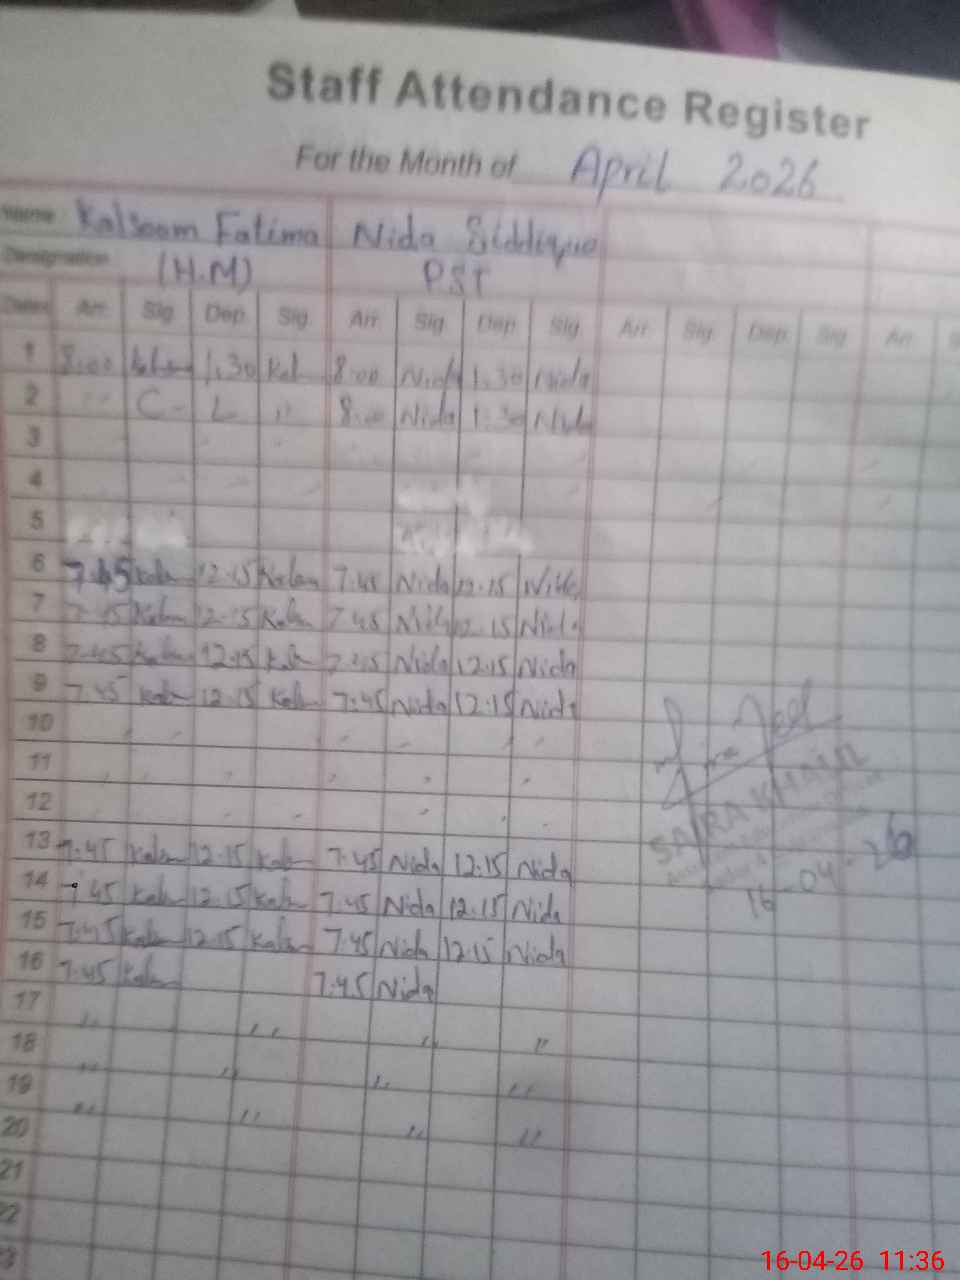 Staff Attendance Register
For the Month of April 2026
Name Kalsoom Fatima Nida Siddique
Designation (H.M) PST
Dates Arr. Sig Dep. Sig Arr. Sig Dep. Sig Arr. Sig Dep. Sig Arr. S
1 8:00 1:30 Kal 8:00 Nida 1:30 Nida
2 C - L " 8:00 Nida 1:30 Nida
3
4
5
6 7:45 Kalm 12:15 Kalsm 7:45 Nida 12:15 Nida
7 7:45 Kalsm 12:15 Kalsm 7:45 Nida 12:15 Nida
8 7:45 Kalsm 12:15 Kalm 7:45 Nida 12:15 Nida
9 7:45 Kalm 12:15 Kalm 7:45 Nida 12:15 Nida
10
11
12
13 7:45 Kalsm 12:15 Kalm 7:45 Nida 12:15 Nida
14 7:45 Kalm 12:15 Kalm 7:45 Nida 12:15 Nida
15 7:45 Kalm 12:15 Kalsm 7:45 Nida 12:15 Nida
16 7:45 Kalsm 7:45 Nida
17 " " " "
18 " " " "
19 " " " "
20
21
22
23
SAIRA KHAN
16-04-26
16-04-26 11:36